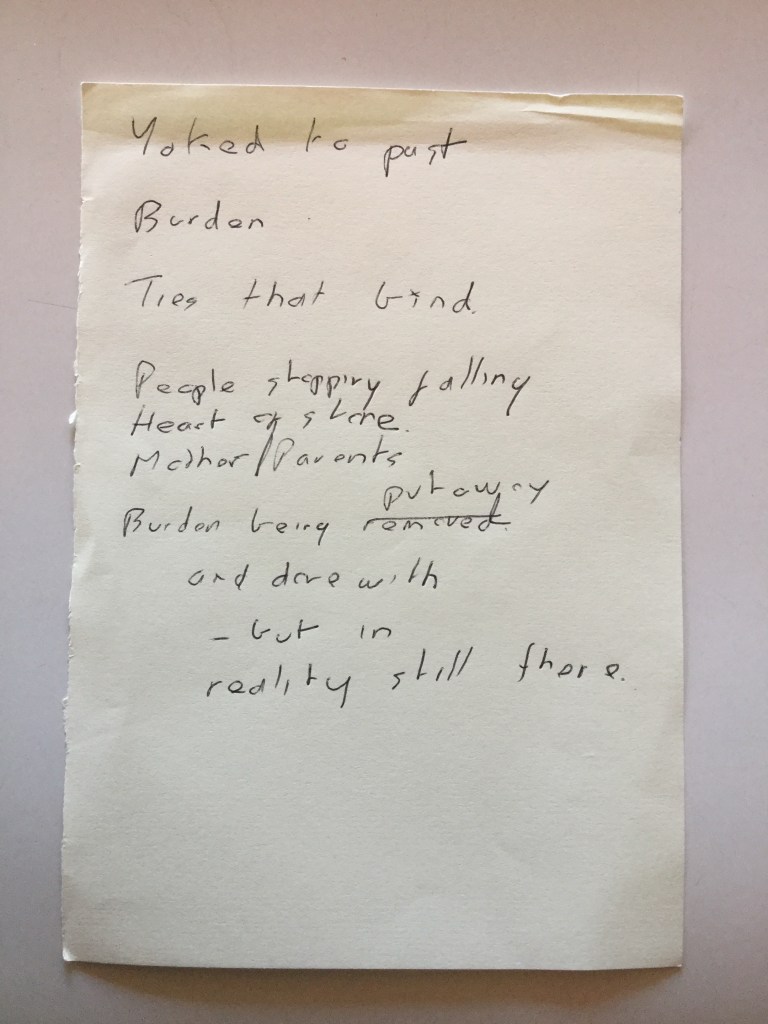 Yoked to past
Burden
Ties that bind.
People stopping falling
Heart of stone.
Mother/Parents
put away
Burden being removed.
and done with
- but in
reality still there.